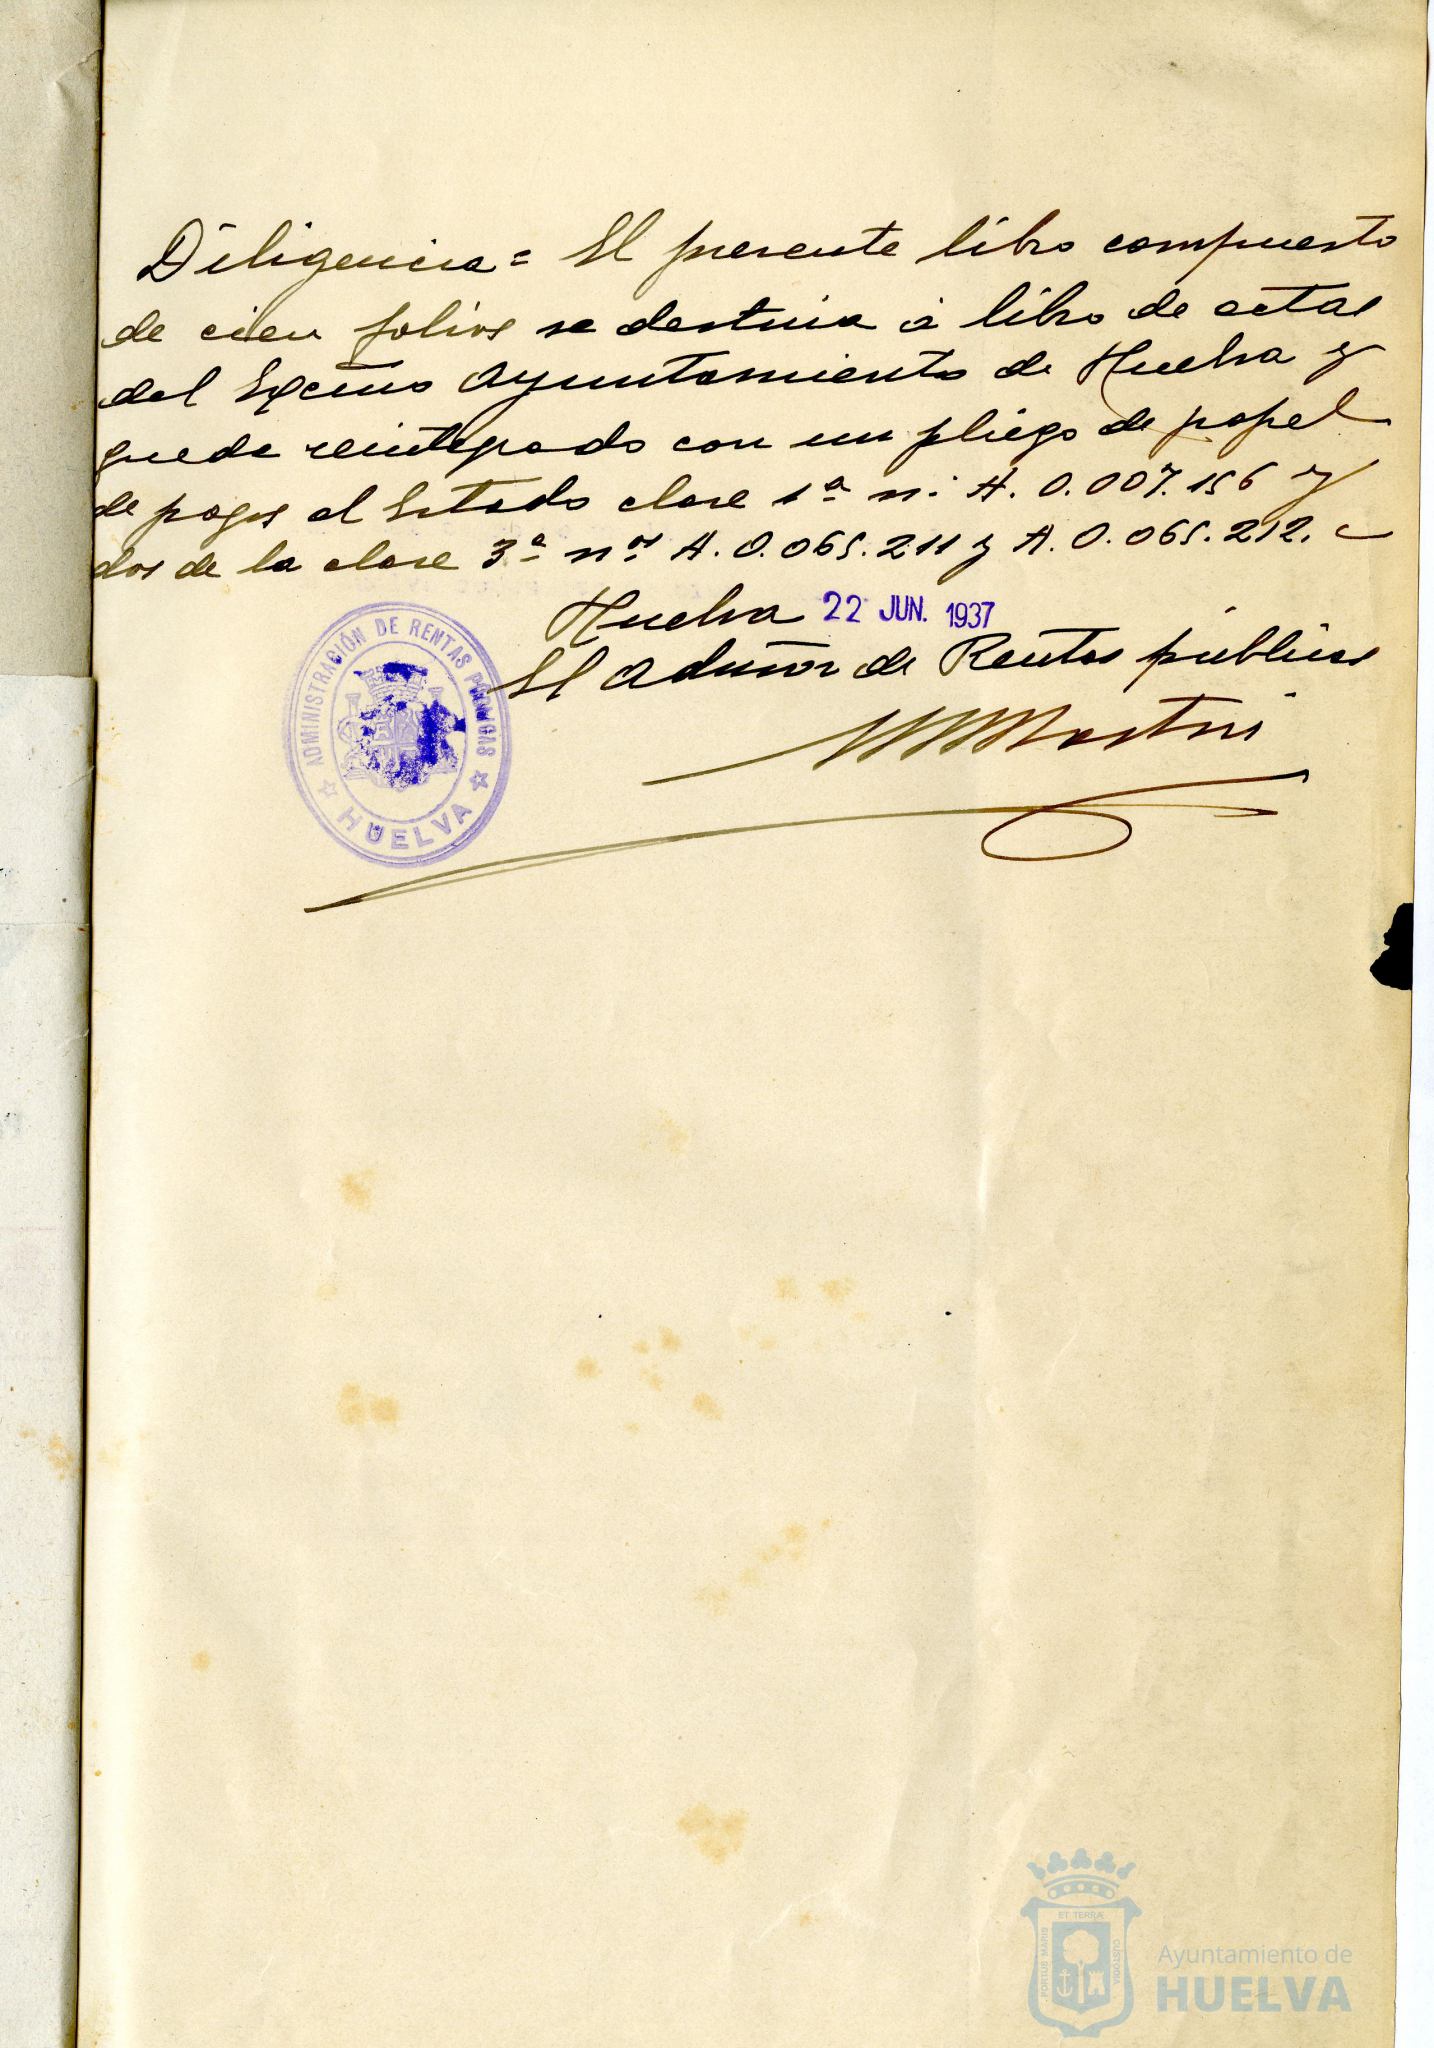 Diligencia = El presente libro compuesto
de cien folios se destina á libro de actas
del Excmo Ayuntamiento de Huelva y
queda reintegrado con un pliego de papel
de pagos al Estado clase 1ª nº A. 0.007.156 y
dos de la clase 3ª nos A. 0.065.211 y A. 0.065.212.
Huelva 22 JUN. 1937
El Admñor de Rentas públicas
ADMINISTRACIÓN DE RENTAS PÚBLICAS
HUELVA
ET TERRÆ
PORTUS MARIS
CUSTODIA
Ayuntamiento de
HUELVA